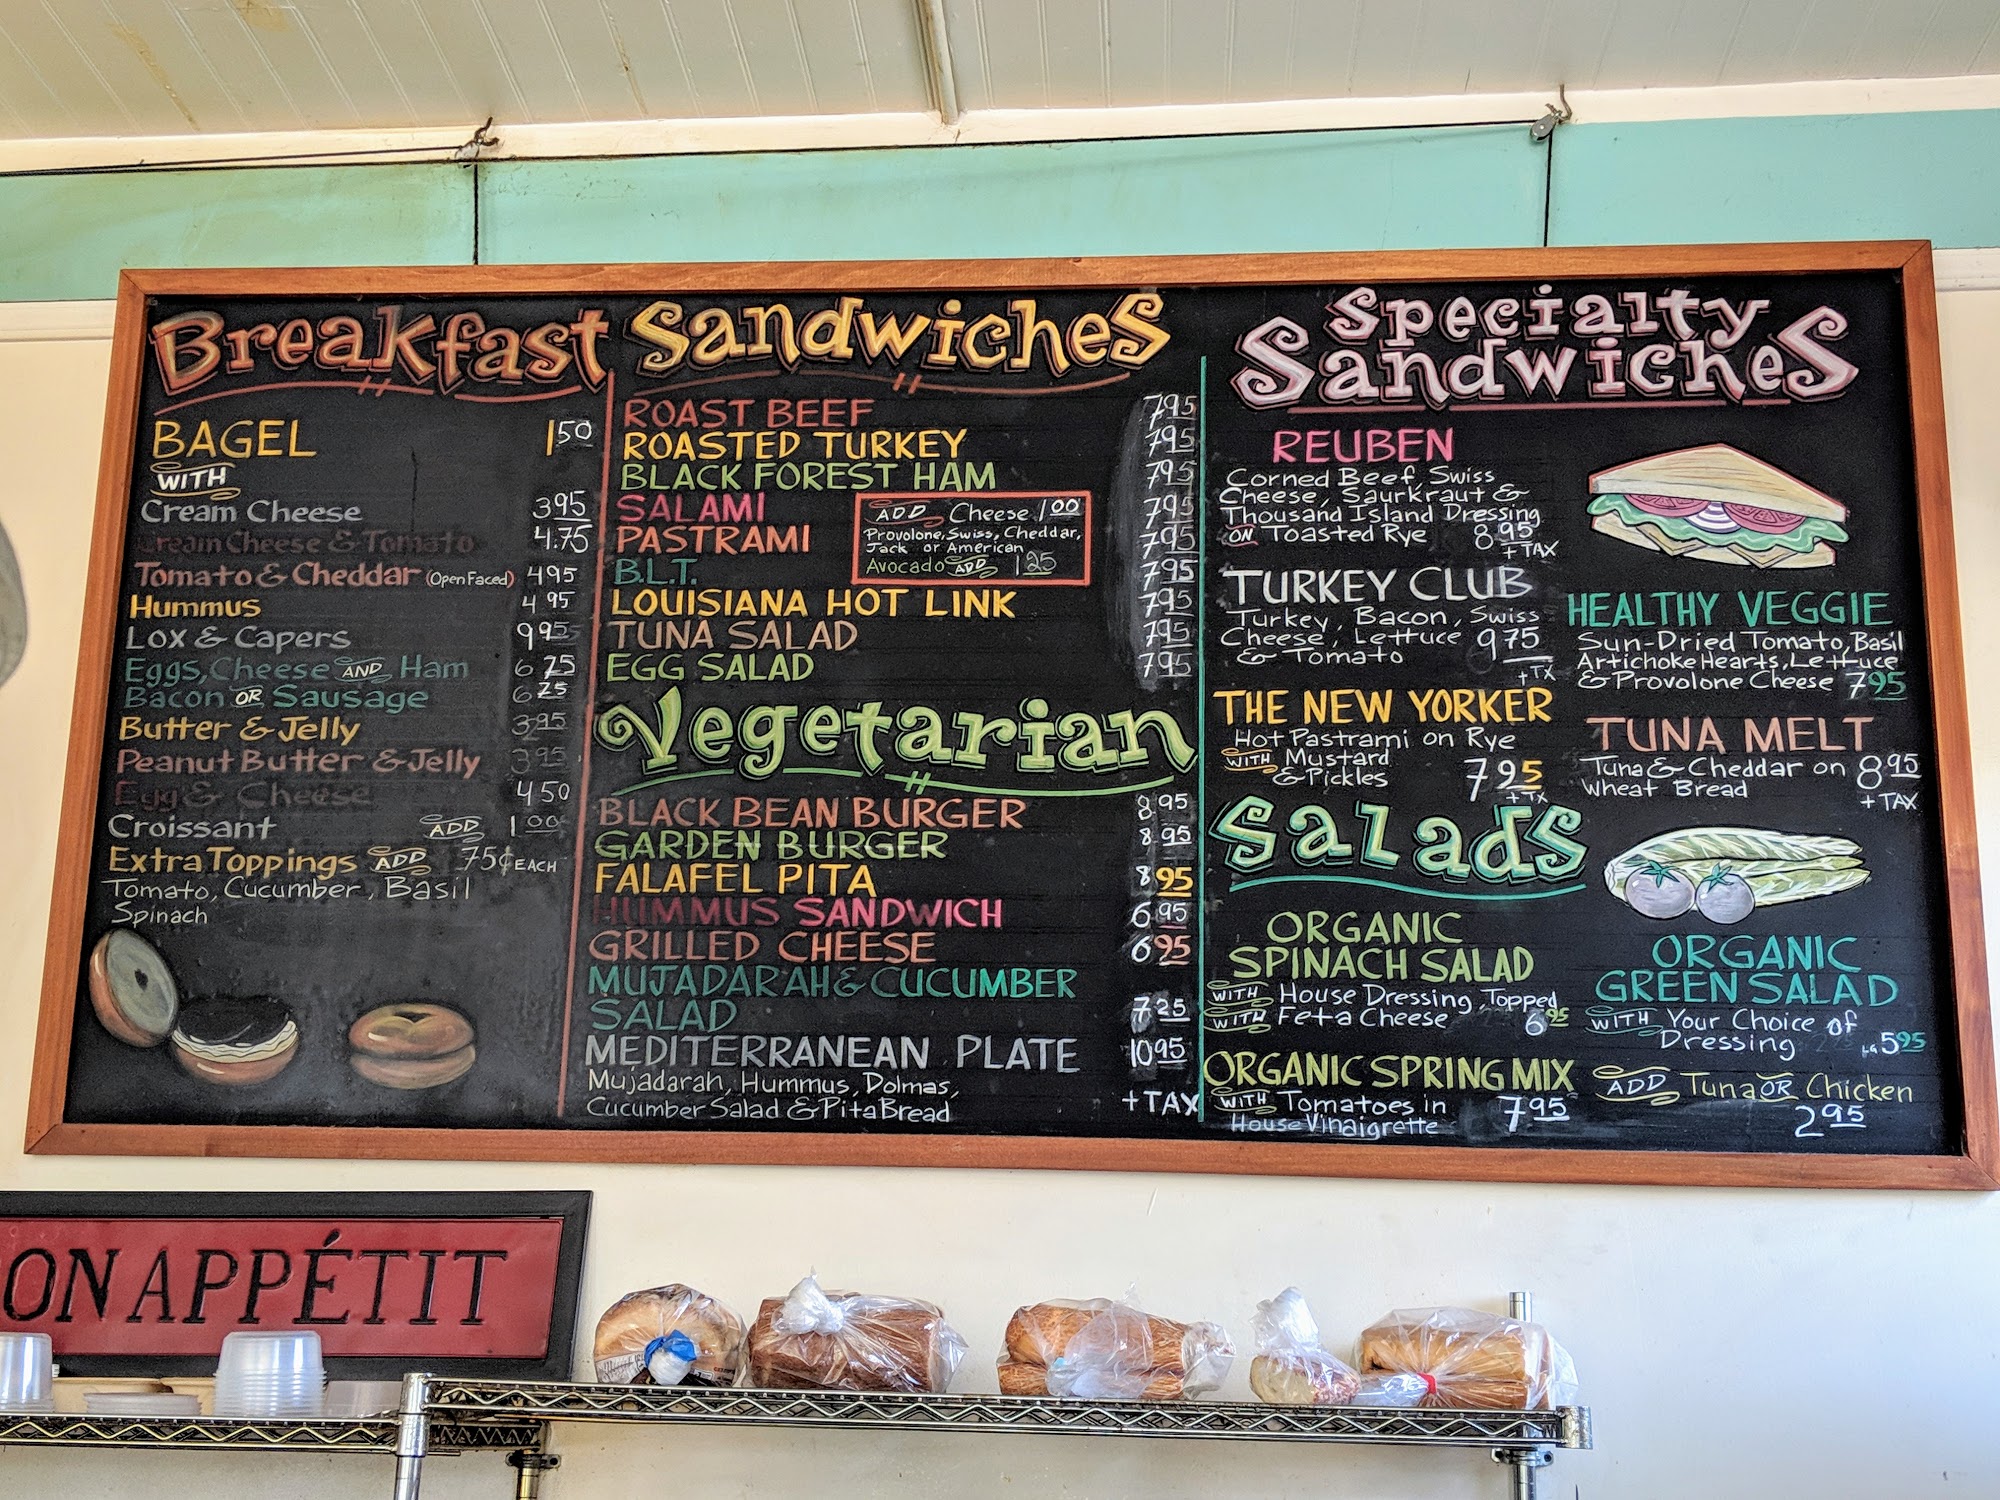 Breakfast
BAGEL 1 50
WITH
Cream Cheese 3 95
Cream Cheese & Tomato 4.75
Tomato & Cheddar (Open Faced) 4 95
Hummus 4 95
Lox & Capers 9 95
Eggs, Cheese AND Ham 6 25
Bacon OR Sausage 6 25
Butter & Jelly 3 95
Peanut Butter & Jelly 3 95
Egg & Cheese 4 50
Croissant ADD 1 00
Extra Toppings ADD 75¢ EACH
Tomato, Cucumber, Basil
Spinach
Sandwiches
ROAST BEEF 7 95
ROASTED TURKEY 7 95
BLACK FOREST HAM 7 95
SALAMI 7 95
PASTRAMI 7 95
B.L.T. 7 95
LOUISIANA HOT LINK 7 95
TUNA SALAD 7 95
EGG SALAD 7 95
ADD Cheese 1 00
Provolone, Swiss, Cheddar,
Jack or American
Avocado ADD 1 25
Vegetarian
BLACK BEAN BURGER 8 95
GARDEN BURGER 8 95
FALAFEL PITA 8 95
HUMMUS SANDWICH 6 95
GRILLED CHEESE 6 95
MUJADARAH & CUCUMBER
SALAD 7 25
MEDITERRANEAN PLATE 10 95
Mujadarah, Hummus, Dolmas,
Cucumber Salad & Pita Bread
+ TAX
Specialty
Sandwiches
REUBEN
Corned Beef, Swiss
Cheese, Saurkraut &
Thousand Island Dressing
ON Toasted Rye 8 95
+ TAX
TURKEY CLUB
Turkey, Bacon, Swiss
Cheese, Lettuce 9 75
& Tomato
+ TX
THE NEW YORKER
Hot Pastrami on Rye
WITH Mustard
& Pickles 7 95
+ TX
HEALTHY VEGGIE
Sun-Dried Tomato, Basil
Artichoke Hearts, Lettuce
& Provolone Cheese 7 95
TUNA MELT
Tuna & Cheddar on 8 95
Wheat Bread
+ TAX
Salads
ORGANIC
SPINACH SALAD
WITH House Dressing, Topped
WITH Feta Cheese 6 95
ORGANIC SPRING MIX
WITH Tomatoes in 7 95
House Vinaigrette
ORGANIC
GREEN SALAD
WITH Your Choice of
Dressing LG 5 95
ADD Tuna OR Chicken
2 95
ON APPÉTIT